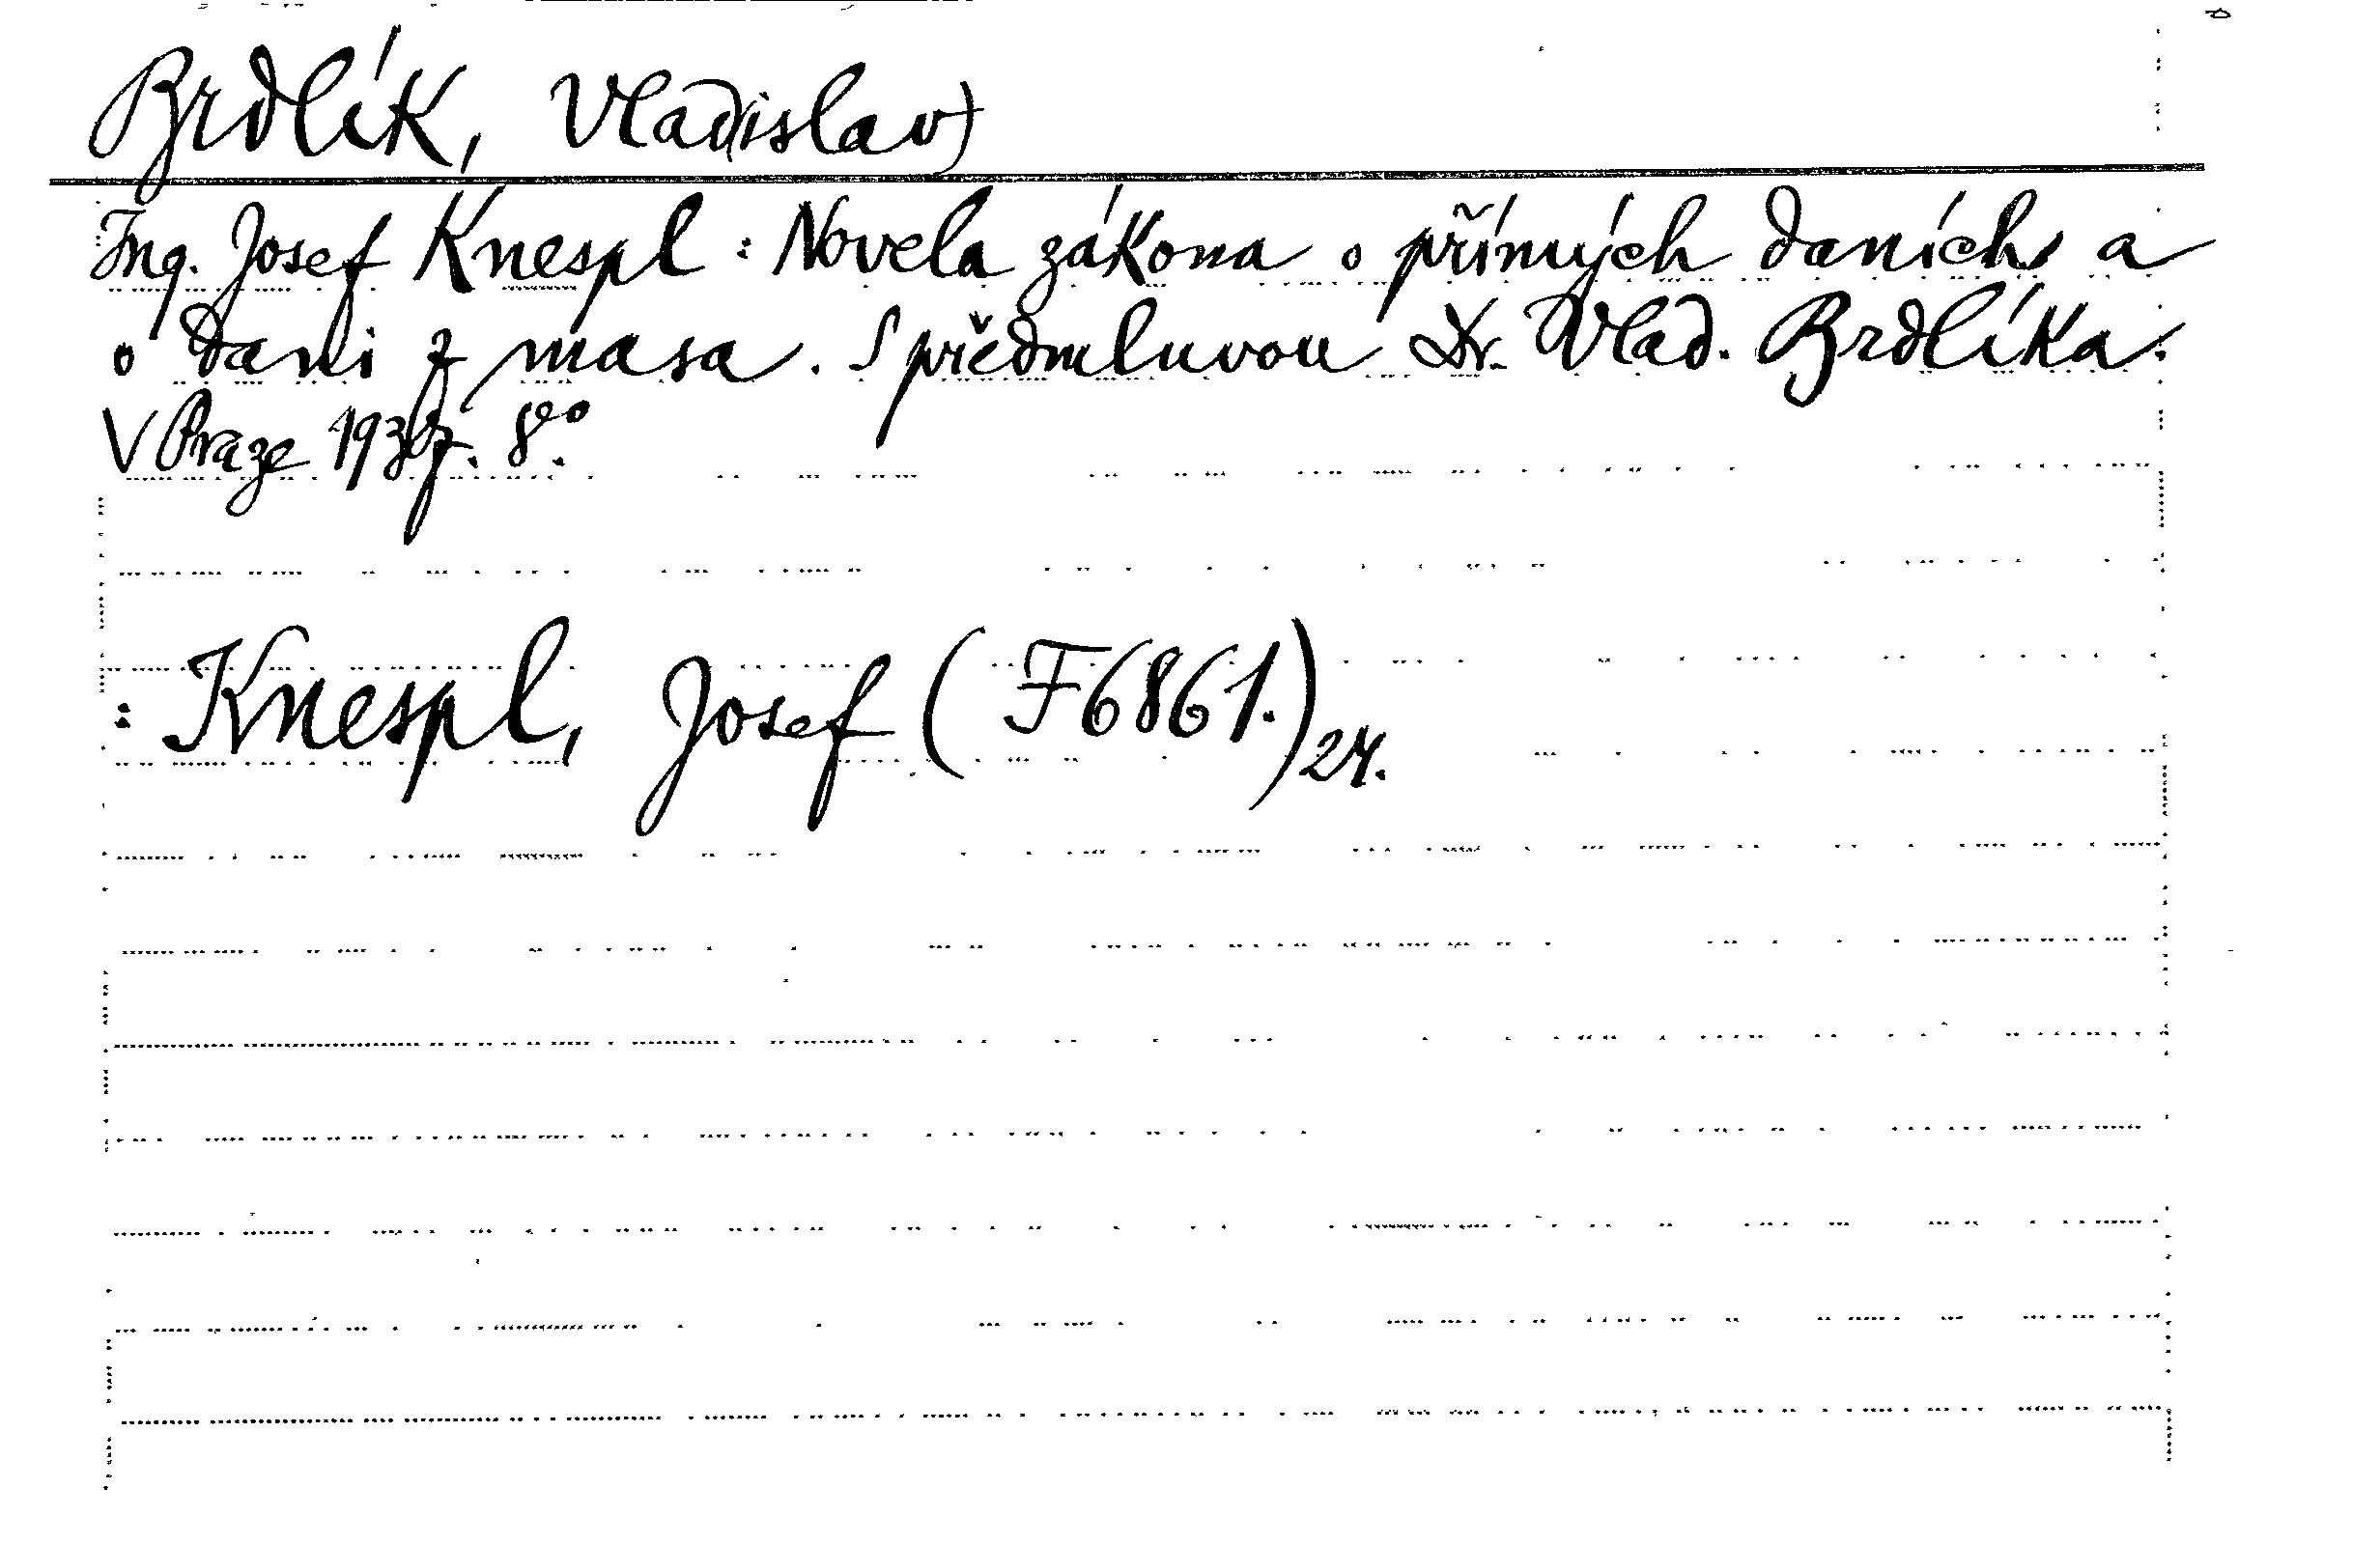 Brdlík, Vlad(islav)
Ing. Josef Knespl: Novela zákona o přímých daních a
o dani z masa. S předmluvou Dr. Vlad. Brdlíka.
V Praze 8°.
: Knespl, Josef (F6861.) 24.